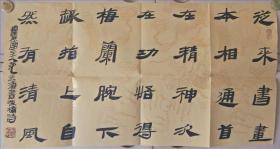 從來書畫
本相通首
在精神次
在功悟得
梅蘭腕下
趣指上自
然有清風